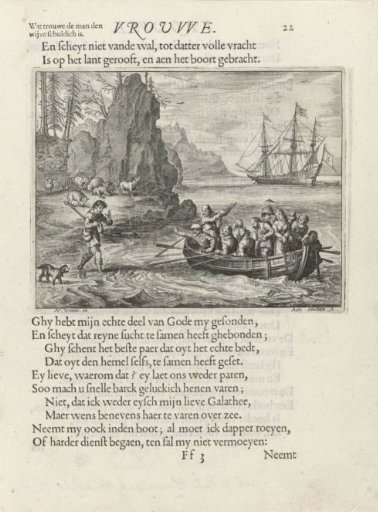 Wat trouwe de man den
wijve schuldich is.
VROUWE.
22
En scheyt niet vande wal, tot datter volle vracht
Is op het lant gerooft, en aen het boort gebracht.
Ghy hebt mijn echte deel van Gode my gesonden,
En scheyt dat reyne sucht te samen heeft ghebonden;
Ghy schent het beste paer dat oyt het echte bedt,
Dat oyt den hemel selfs, te samen heeft geset.
Ey lieve, waerom dat? ey laet ons weder paren,
Soo mach u snelle barck geluckich henen varen;
Niet, dat ick weder eysch mijn lieve Galathee,
Maer wens benevens haer te varen over zee.
Neemt my oock inden boot; al moet ick dapper roeyen,
Of harder dienst begaen, ten sal my niet vermoeyen:
Ff 3
Neemt